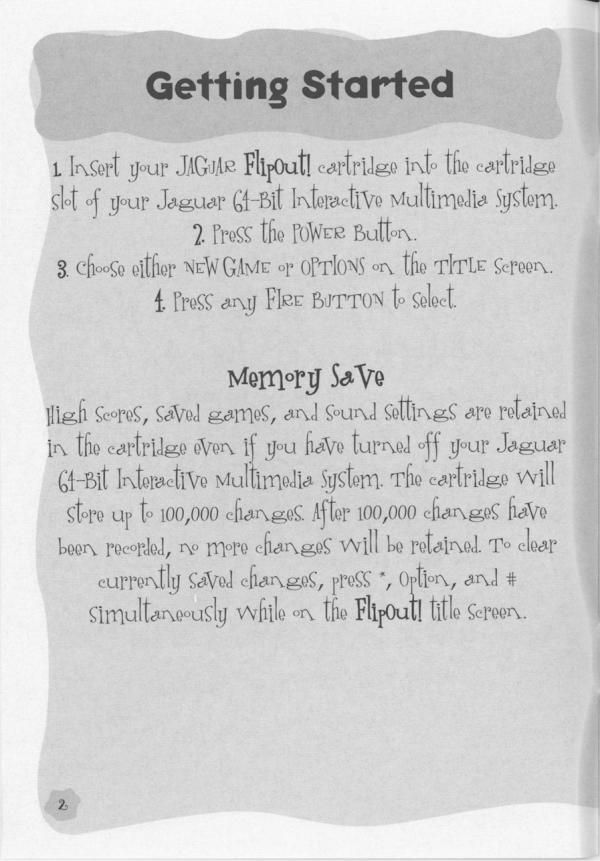 Getting Started
1. Insert your JAGUAR FlipOut! cartridge into the cartridge
slot of your Jaguar 64-Bit Interactive Multimedia System.
2. Press the POWER Button.
3. Choose either NEW GAME or OPTIONS on the TITLE screen.
4. Press any FIRE BUTTON to select.
Memory Save
High scores, saved games, and sound settings are retained
in the cartridge even if you have turned off your Jaguar
64-Bit Interactive Multimedia System. The cartridge will
store up to 100,000 changes. After 100,000 changes have
been recorded, no more changes will be retained. To clear
currently saved changes, press *, Option, and #
simultaneously while on the FlipOut! title screen.
2